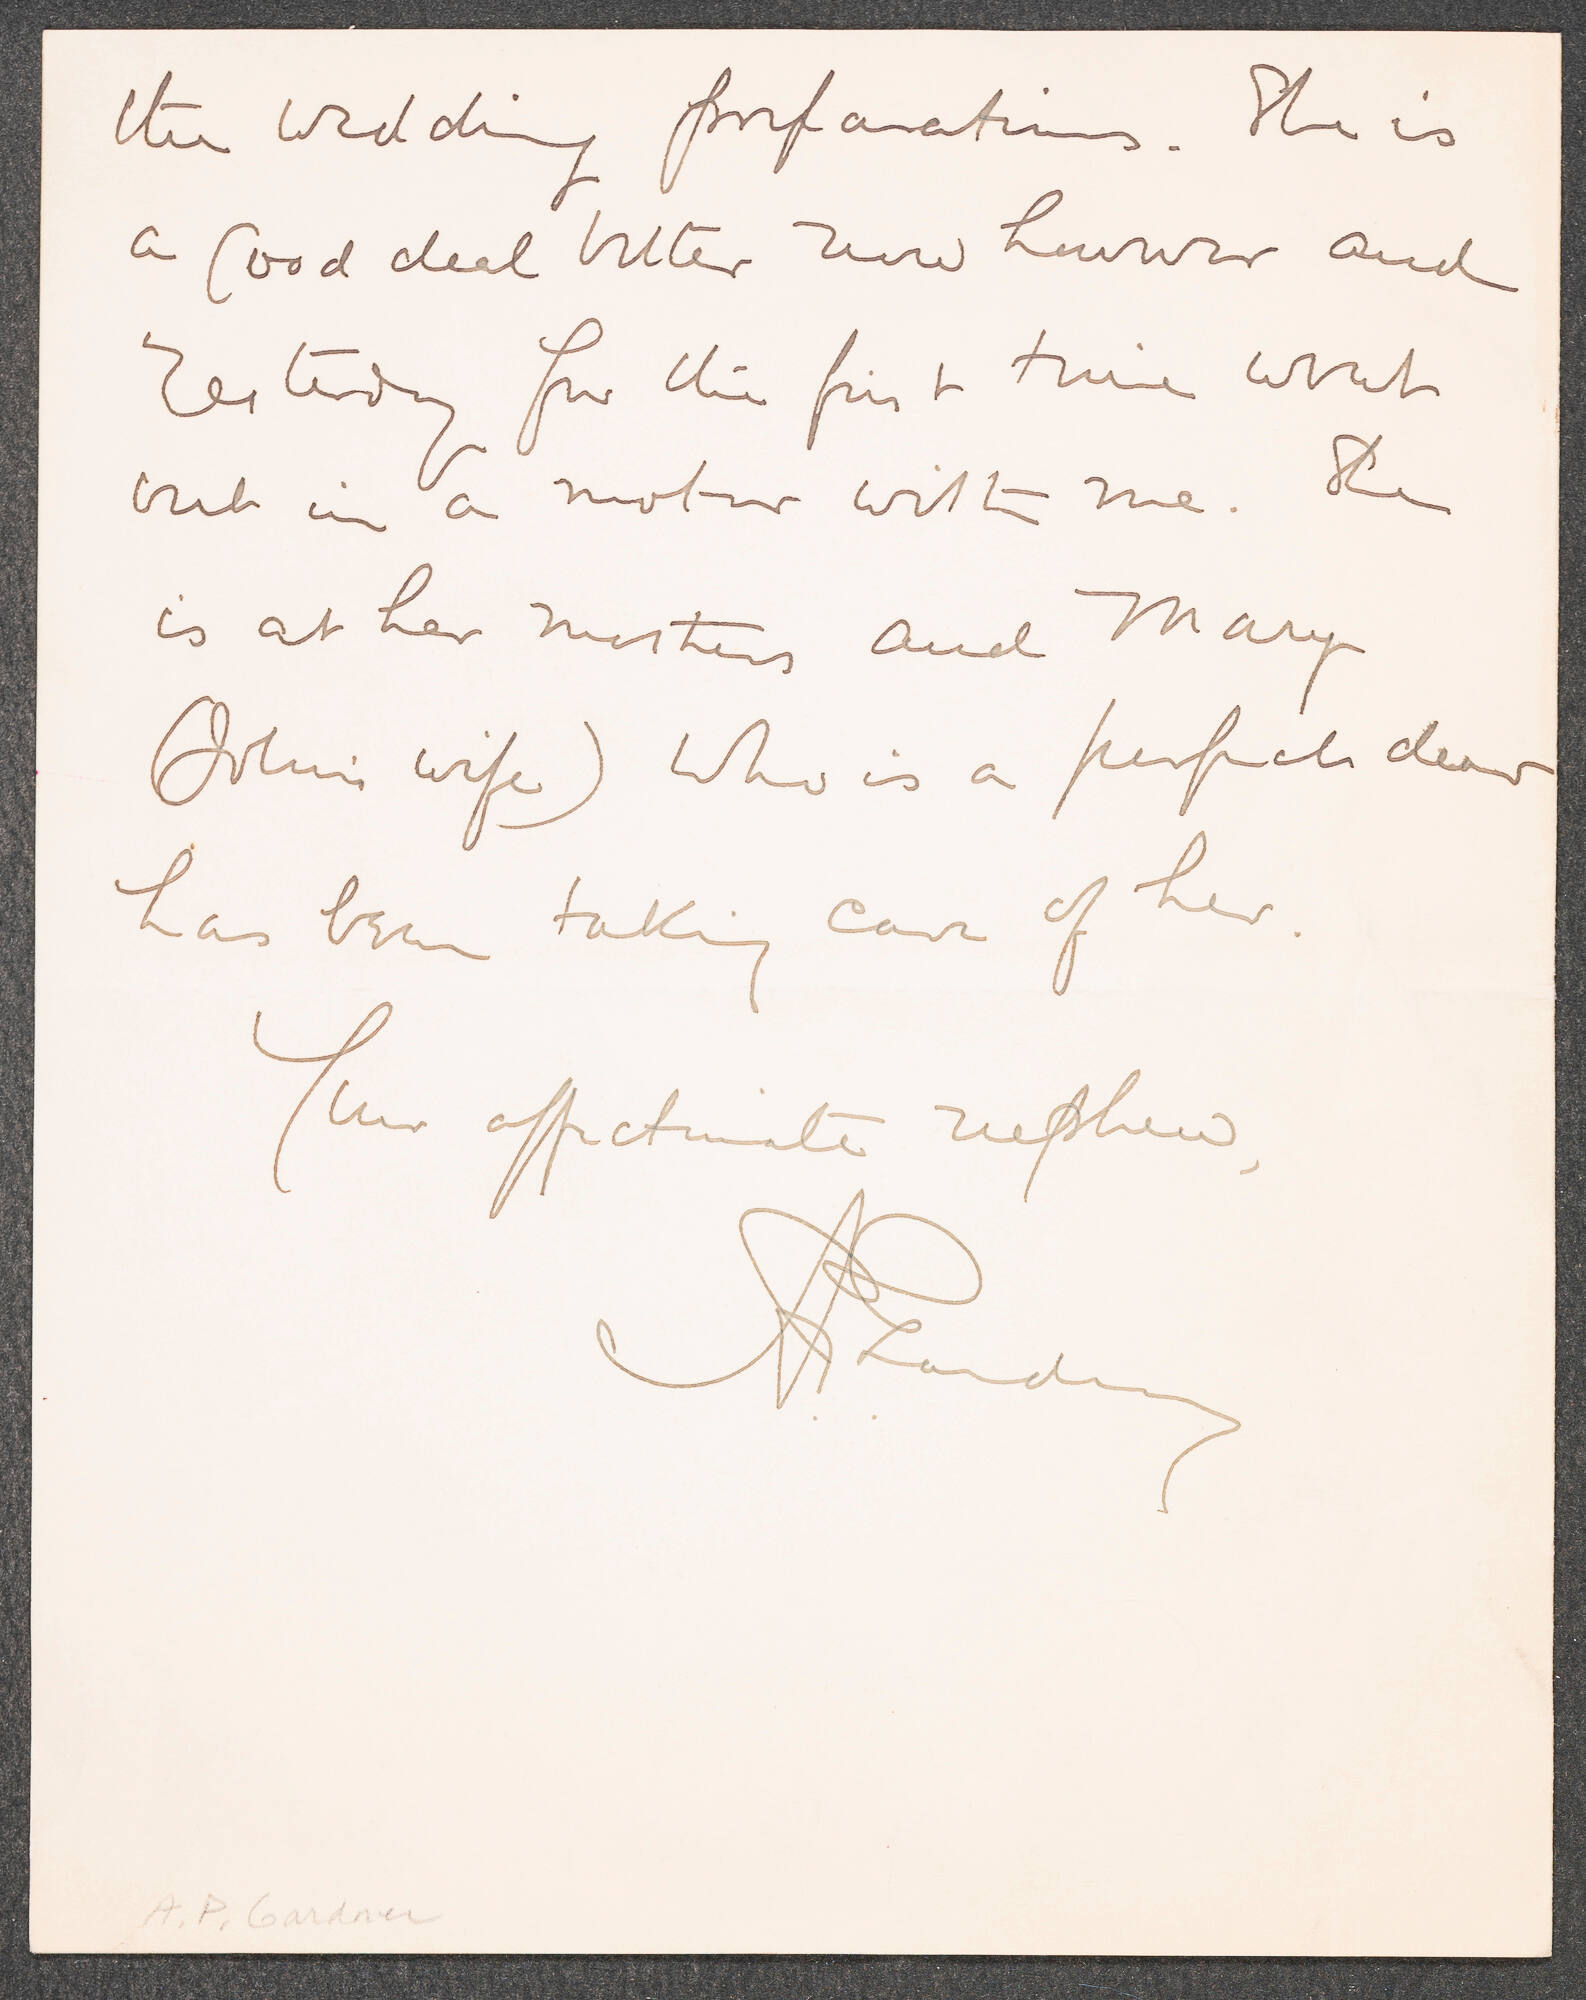 the wedding preparations. She is
a good deal better now however and
Yesterday for the first time went
out in a motor with me. She
is at her mothers and Mary
(John's wife) who is a perfect dear
has been taking care of her.
Your affectionate nephew,
A.P. Gardner
A. P. Gardner